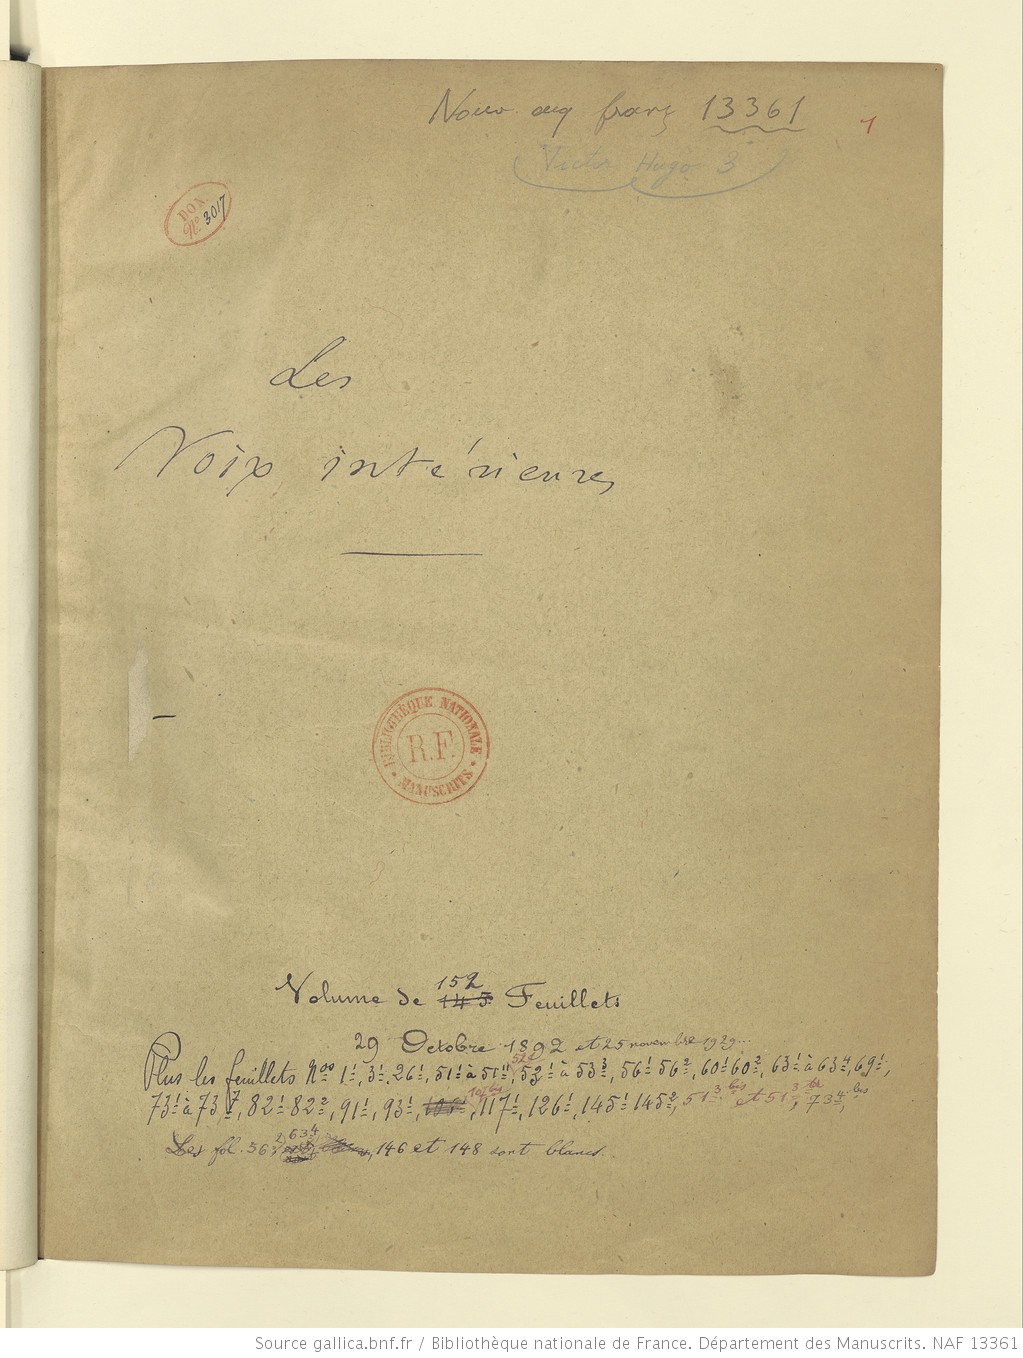 Nouv. acq. franç. 13361
1
Victor Hugo 3
DON.
No 3017
Les
Voix intérieures
BIBLIOTHÈQUE NATIONALE
R.F.
MANUSCRITS
152
Volume de 145 Feuillets
29 Octobre 1892 et 25 novembre 1929
Plus les feuillets Nos 1¹, 3¹, 26¹, 51¹ à 51¹¹, 52¹ à 53², 56¹ 56², 60¹ 60², 63¹ à 63⁴, 69¹,
73¹ à 73⁷, 82¹ 82², 91¹, 93¹, 117¹, 126¹, 145¹ 145², 51³ bis et 51³ ter, 73⁴ bis
63⁴
Les fol. 56², 146 et 148 sont blancs.
Source gallica.bnf.fr / Bibliothèque nationale de France. Département des Manuscrits. NAF 13361